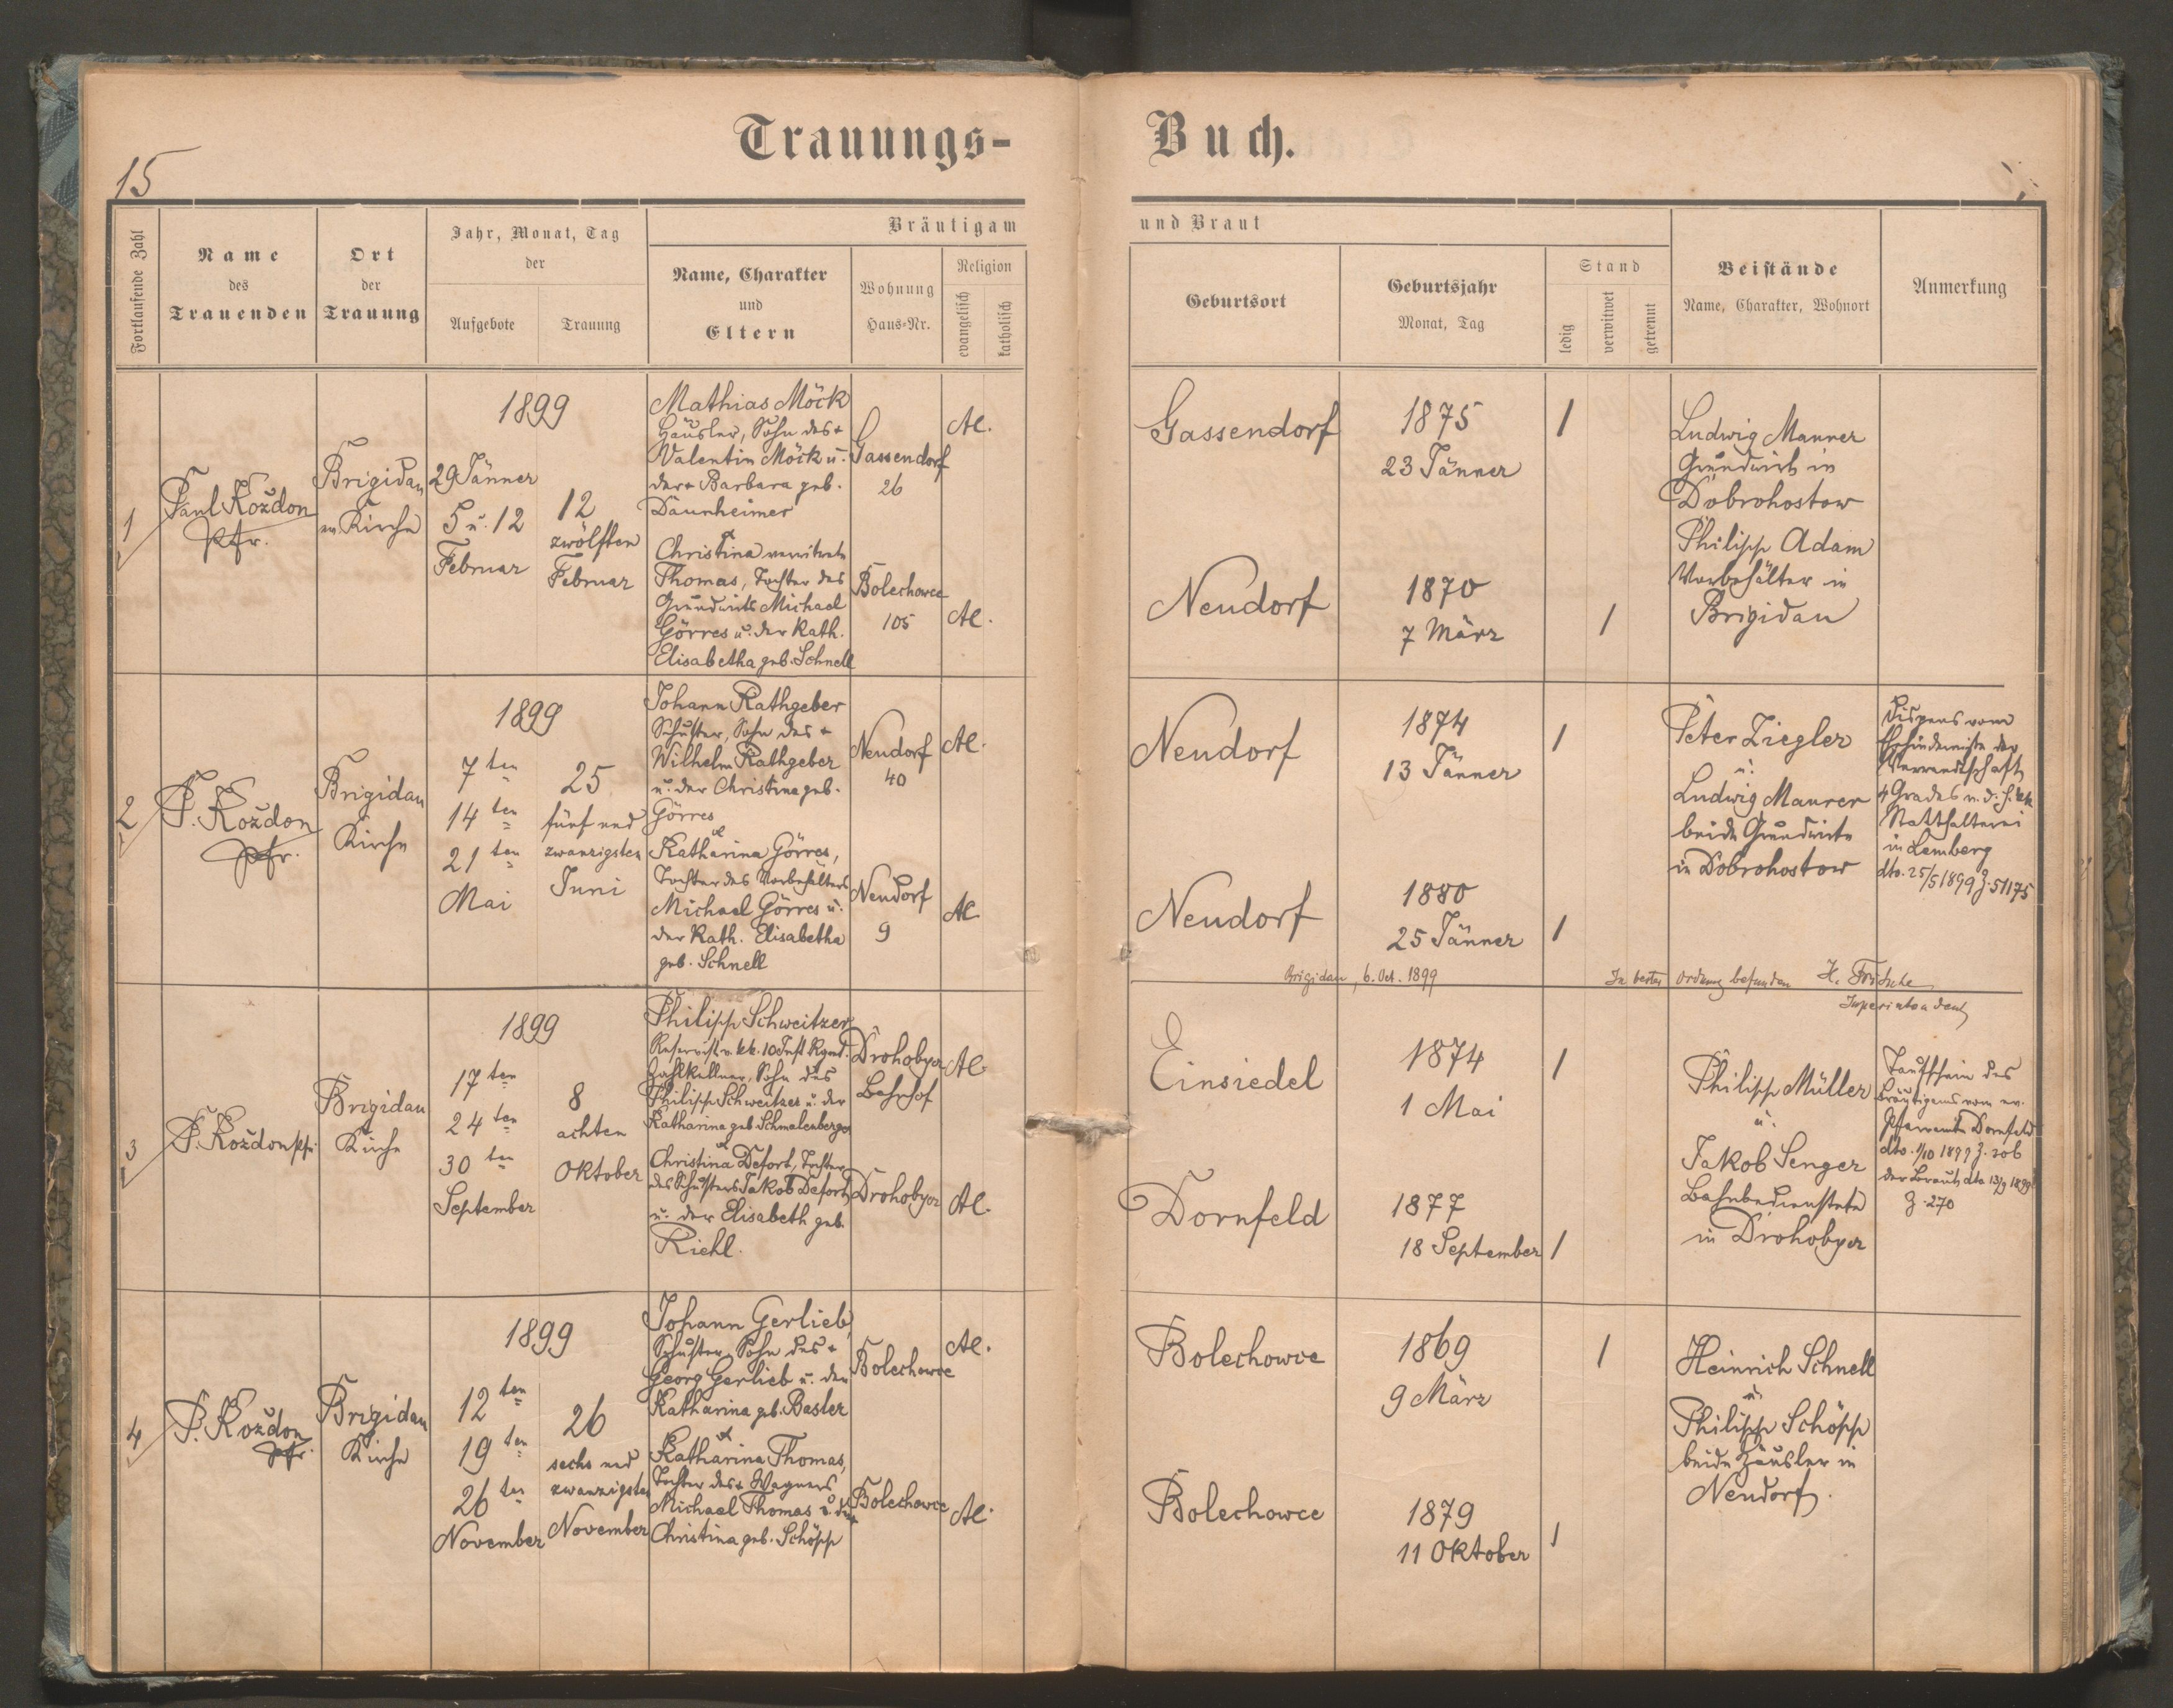 Trauungs-
Buch.
15
Fortlaufende Zahl
Name
des
Trauenden
Ort
der
Trauung
Jahr, Monat, Tag
der
Aufgebote
Trauung
Bräutigam
Name, Charakter
und
Eltern
Wohnung
Haus-Nr.
Religion
evangelisch
katholisch
und Braut
Geburtsort
Geburtsjahr
Monat, Tag
Stand
ledig
verwitwet
getrennt
Beistände
Name, Charakter, Wohnort
Anmerkung
1
Paul Koždon
Pfr.
Brigidau
ev. Kirche
1899
29 Jänner
5 u. 12
Februar
12
zwölften
Februar
Mathias Möck
Häusler, Sohn des +
Valentin Möck u.
der + Barbara geb.
Daunheimer
&
Christina verwitwete
Thomas, Tochter des
Grundwirts Michael
Görres u. der Kath.
Elisabetha geb. Schnell
Gassendorf
26
Bolechowce
105
AC.
AC.
Gassendorf
1875
23 Jänner
1
Neudorf
1870
7 März
1
Ludwig Maurer
Grundwirt in
Dobrohostow
Philipp Adam
Vorbehälter in
Brigidau
2
P. Koždon
Pfr.
Brigidau
Kirche
1899
7ten
14ten
21ten
Mai
25
fünf und
zwanzigsten
Juni
Johann Rathgeber
Schuster, Sohn des +
Wilhelm Rathgeber
u. der Christina geb.
Görres
&
Katharina Görres,
Tochter des Vorbehälters
Michael Görres u.
der Kath. Elisabetha
geb. Schnell
Neudorf
40
Neudorf
9
AC.
AC.
Neudorf
1874
13 Jänner
1
Neudorf
1880
25 Jänner
1
Peter Ziegler
u.
Ludwig Maurer
beide Grundwirte
in Dobrohostow
Dispens vom
Ehehindernisse der
Verwandtschaft
4 Grades v. d. h. kk
Statthalterei
in Lemberg
dto. 25/5 1899 Z. 51175
Brigidau, 6. Oct. 1899
In bester Ordnung befunden H. Fritsche
Superintendent
3
P. Koždon pfr.
Brigidau
Kirche
1899
17ten
24ten
30ten
September
8
achten
Oktober
Philipp Schweitzer
Reservist v. kk. 10 Inft Rgmt.
Zahlkellner, Sohn des
Philipp Schweitzer u. der
Katharina geb Schmalenberger
&
Christina Defort, Tochter
des Schusters Jakob Defort
u. der Elisabeth geb.
Riehl.
Drohobycz
Bahnhof
Drohobycz
AC.
AC.
Einsiedel
1874
1 Mai
1
Dornfeld
1877
18 September
1
Philipp Müller
u.
Jakob Senger
Bahnbedienstete
in Drohobycz
Taufschein des
Bräutigams vom ev.
Pfarramte Dornfeld
dto. 1/10 1899 Z. 206
der Braut dto 13/9 1899
Z. 270
4
P. Koždon
pfr.
Brigidau
Kirche
1899
12ten
19ten
26ten
November
26
sechs und
zwanzigsten
November
Johann Gerlieb,
Schuster, Sohn des +
Georg Gerlieb u. der
Katharina geb. Basler
&
Katharina Thomas,
Tochter des + Wagners
Michael Thomas u. der
Christina geb. Schöpp
Bolechowce
Bolechowce
AC.
AC.
Bolechowce
1869
9 März
1
Bolechowce
1879
11 Oktober
1
Heinrich Schnell
u.
Philipp Schöpp
beide Häusler in
Neudorf.